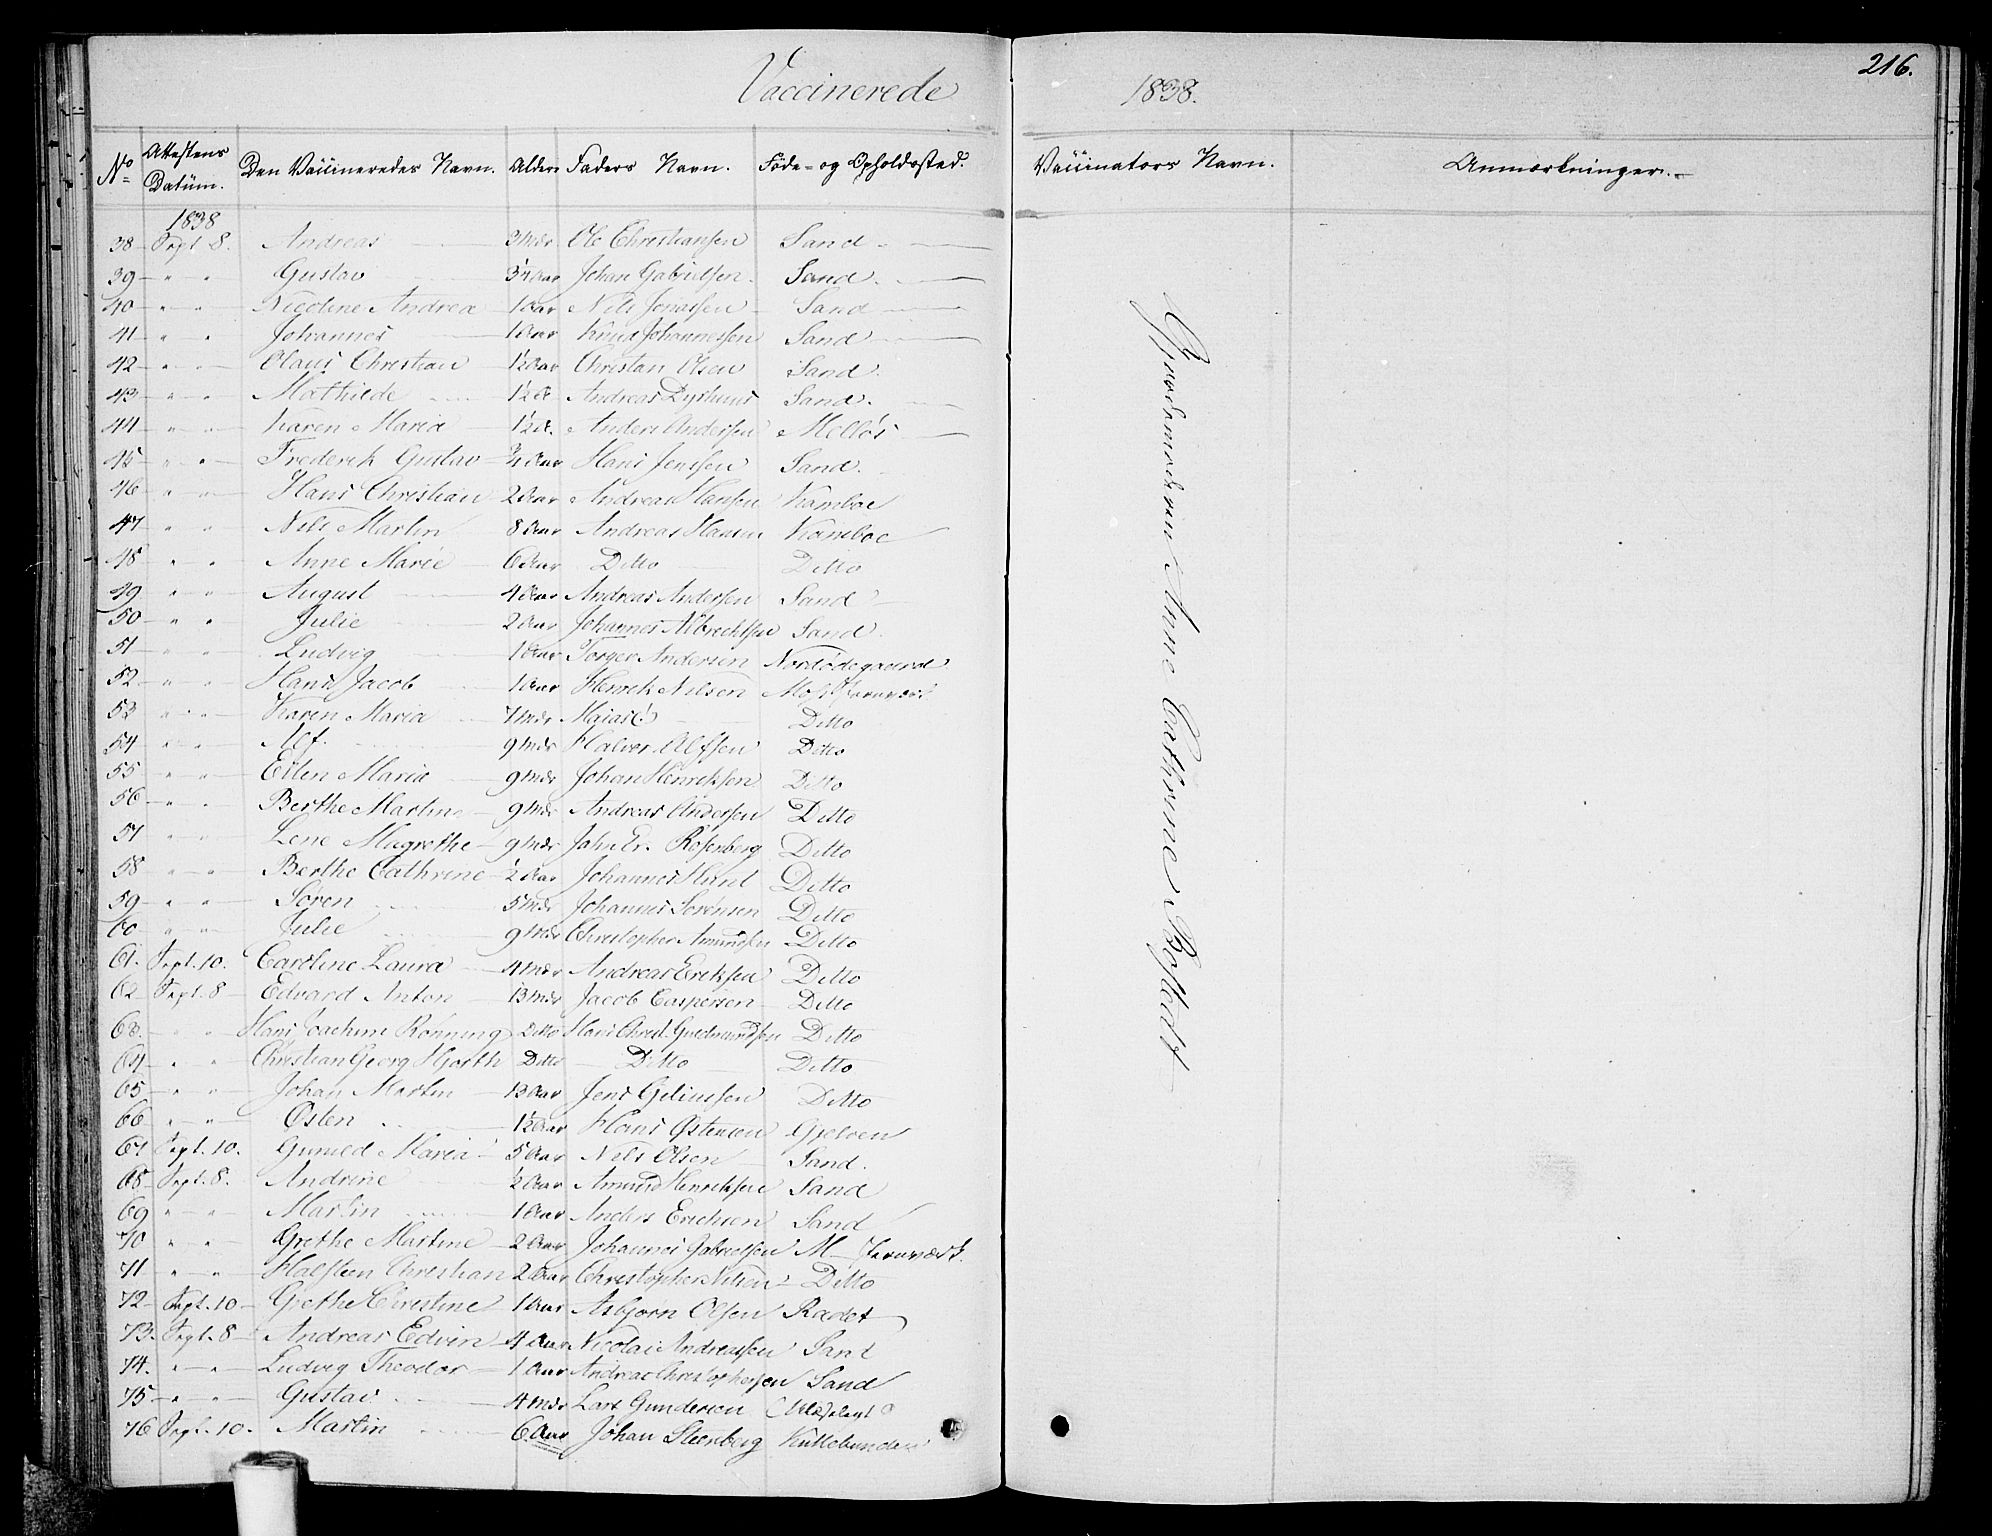 Vaccinerede 1838. 216.
No Attestens Datum. Den Vaccineredes Navn. Alder Faders Navn. Føde- og Opholdssted. Vaccinators Navn. Anmærkninger.
1838
38 Sept. 8. Andreas 3 Mdr Ole Christiansen Sand
39 " " Gustav Aar Johan Gabrielsen Sand
40 " " Nicoline Andrea 1 Aar Nils Sand
41 " " Johannes 1 Aar Knud Johannessen Sand
42 " " Olaus Christian 1½ Aar Christian Olsen Sand
43 " " Mathilde 1½ A. Andreas Sand.
44 " " Karen Maria 1½ A. Anders Andersen Melløs
45 " " Frederik Gustav ¾ Aar Hans Jensen Sand.
46 " " Hans Christian 2 Aar Andreas Hansen Kamboe
47 " " Nils Martin 8 Aar Andreas Hansen Kamboe
48 " " Anne Marie 6 Aar Ditto Ditto
49 " " August 4 Aar Andreas Andersen Sand
50 " " Julie 2 Aar Johannes Albrechtsen Sand
51 " " Ludvig 1 Aar Torger Andersen Nordødegaard
52 " " Hans Jacob 1 Aar Henrik Nilsen Moss Jernværk
53 " " Karen Maria 7 Mdr Ditto
54 " " Alf. 9 Mdr Halvor Alfsen Ditto
55 " " Ellen Marie 9 Mdr Johan Henriksen Ditto
56 " " Berthe Martine 9 Mdr Andreas Andersen Ditto
57 " " Lene Magrethe 9 Mdr John Er. Rosenberg Ditto
58 " " Berthe Cathrine ½ Aar Johannes Ditto
59 " " Søren 5 Mdr Johannes Sørensen Ditto
60 " " Julie 9 Mdr Christopher Amundsen Ditto
61. Sept. 10. Caroline Laura 4 Mdr Andreas Eriksen Ditto
62 Sept. 8 Edvard Anton 13 Mdr Jacob Caspersen Ditto
63. " " Hans Joachim Rønning Ditto Hans Christ. Gudmundsen Ditto
64 " " Christian Georg Hjorth Ditto Ditto Ditto
65 " " Johan Martin 13 Aar Jens Ditto
66 " " Østen 1½ Aar Hans Østensen
67 Sept. 10. Gunild Maria 5 Aar Nils Olsen Sand.
68 Sept. 8. Andrine ½ Aar Amund Henriksen Sand
69 " " Martin 1 Aar Anders Erichsen Sand
70 " " Grethe Martine 2 Aar Johannes Gabrielsen M Jernværk.
71 " " Halsten Christian 2 Aar Christopher Nilsen Ditto
72 Sept. 10 Grethe Christine 1 Aar Asbjørn Olsen Rødet
73. Sept. 8 Andreas Edvin 4 Aar Nicolai Andreassen Sand
74. " " Ludvig Theodor 1 Aar Andreas Christophersen Sand
75 " " Gustav 4 Mdr Lars Gundersen
76 Sept. 10. Martin 6 Aar Johan Steenberg
Gjordemoderen Anne Cathrine